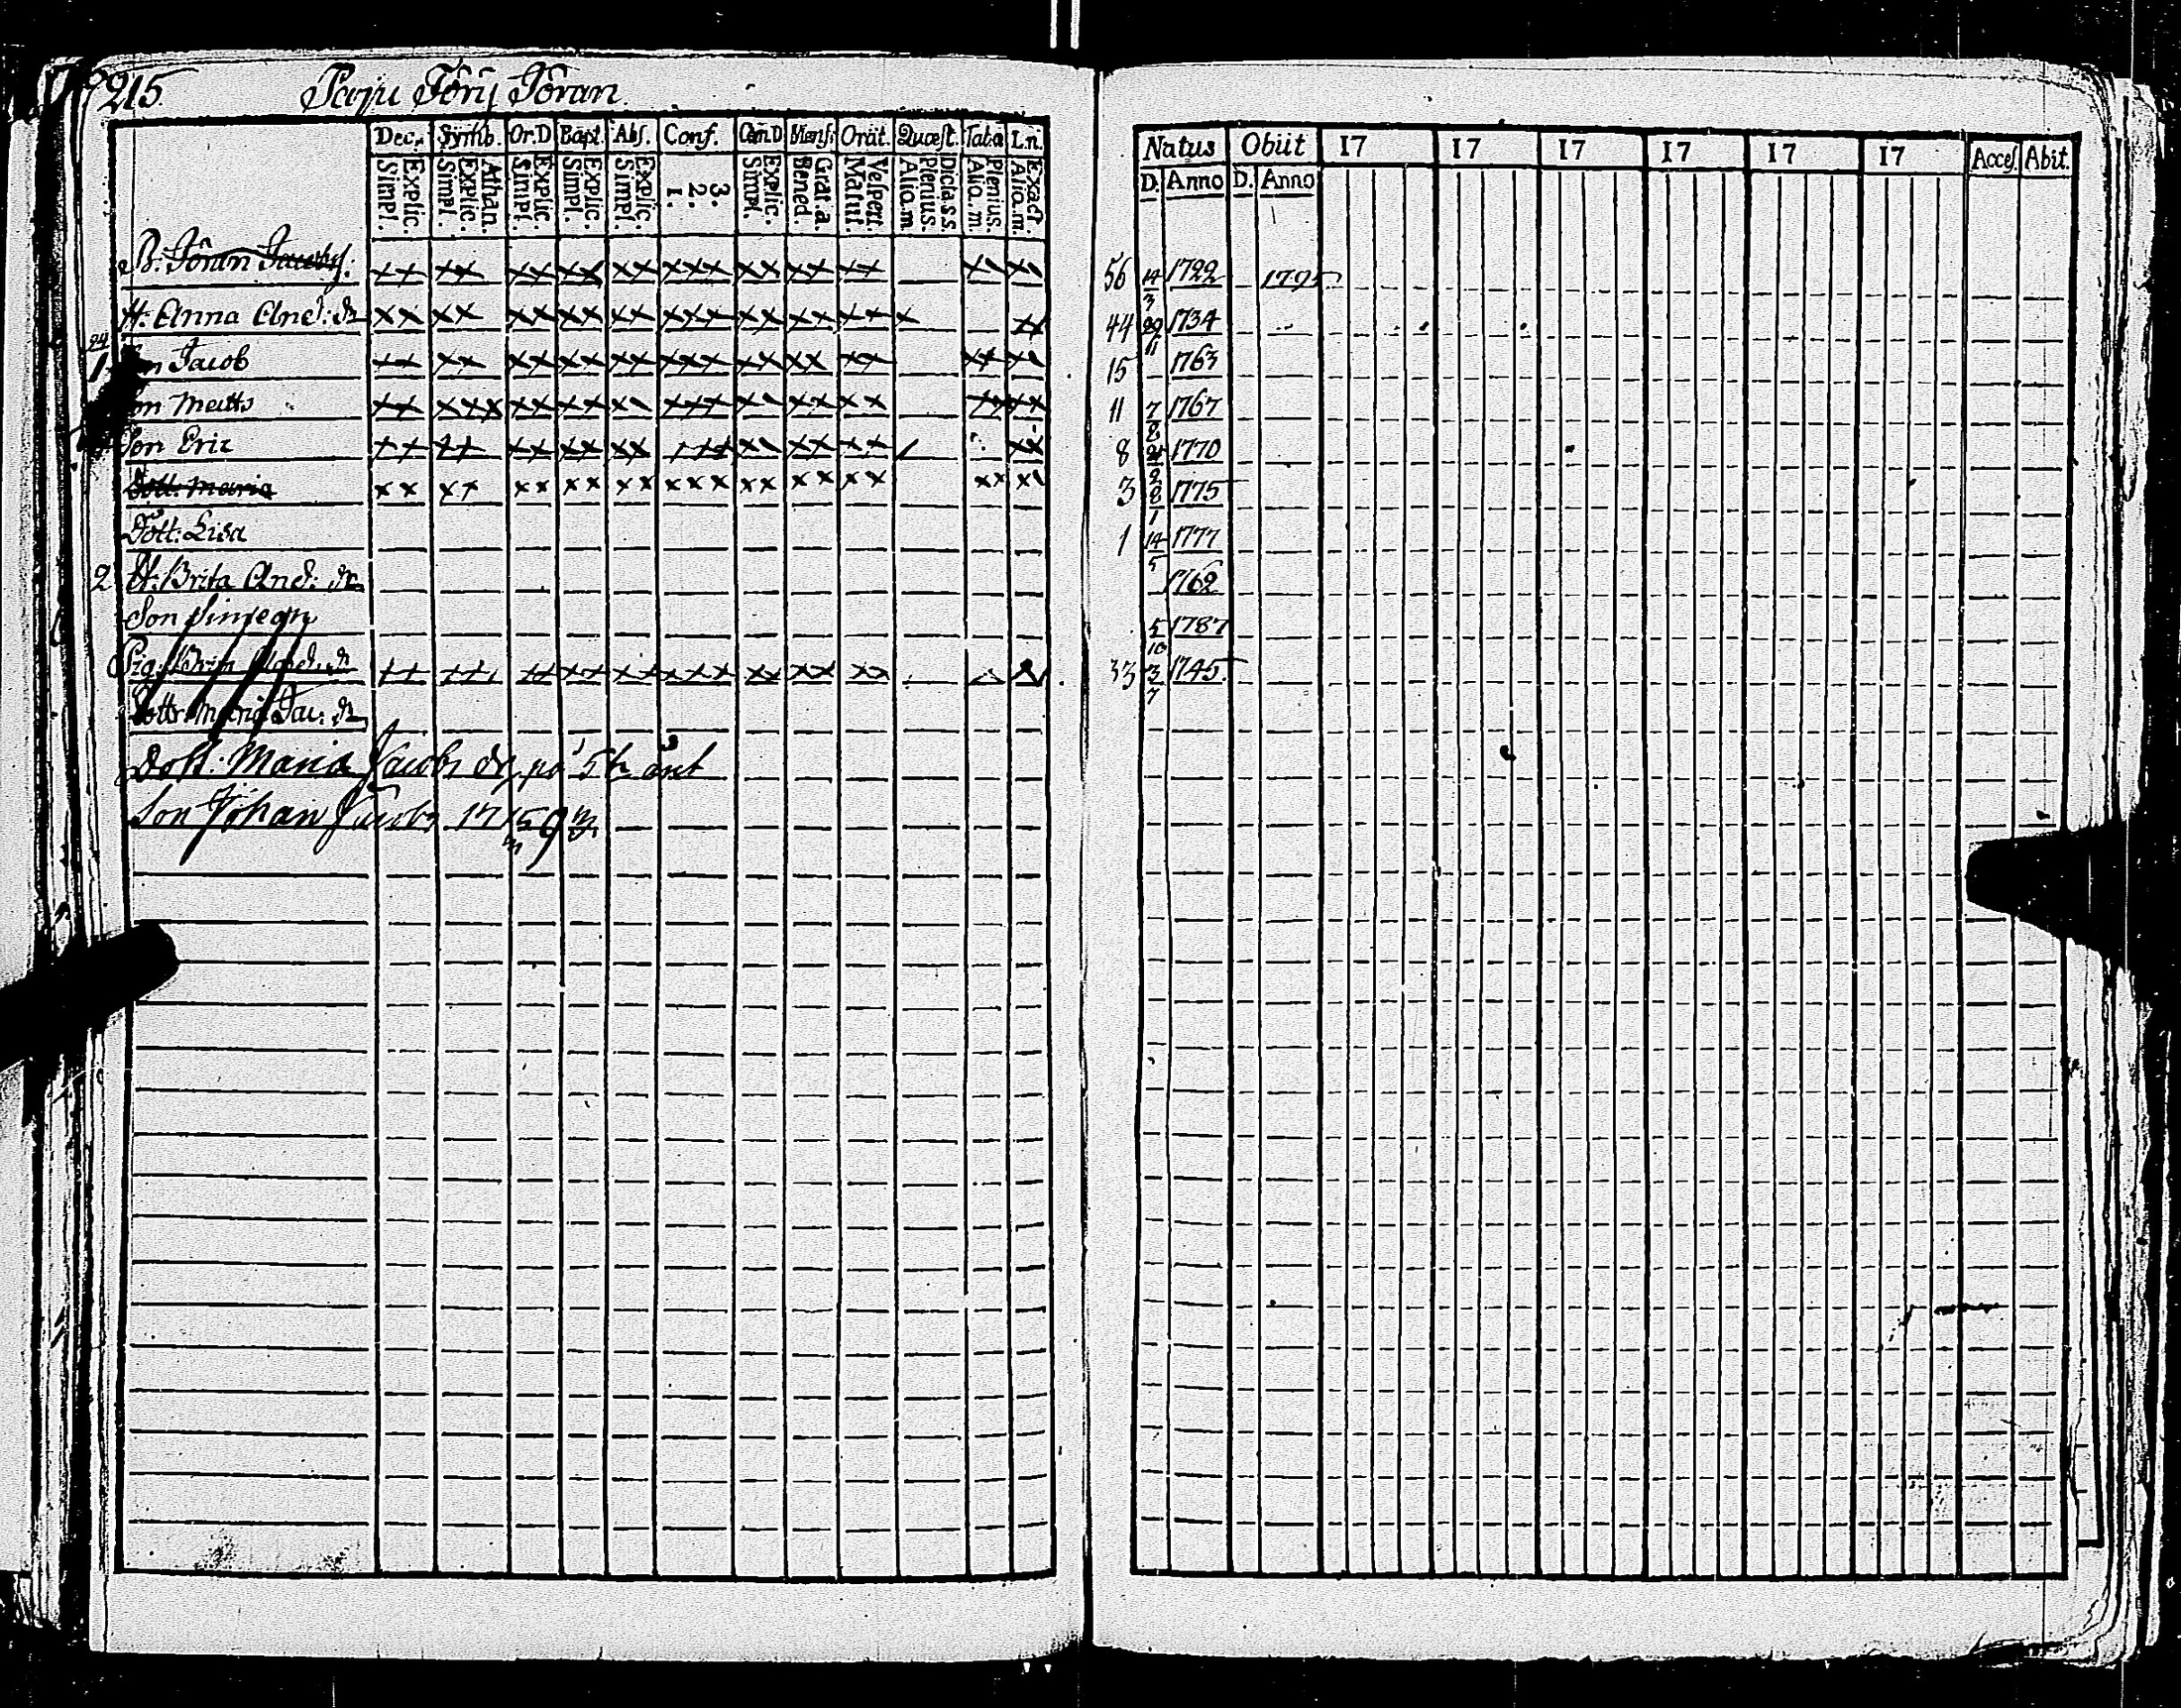 215 Paju Jörij Jöran
Dec. Symb. Or.D Bapt. Abs. Conf. Cæn.D Mens. Orat. Quæst. Tab.a L.n.
Simpl. Explic. Simpl. Explic. Athan. Simpl. Explic. Simpl. Explic. Simpl. Explic. 1. 2. 3. Simpl. Explic. Bened. Grat.a. Matut. Vespert. Alio.m Plenius. Dicta.s.s Alio.m Plenius. Alio.m. Exact.
Natus Obiit 17 17 17 17 17 17 Acces. Abit.
D. Anno D. Anno
B: Jöran Jacobs: 56 14/3 1722 1795
H. Anna And: dr 44 29/11 1734
1 Son Jacob 15 1763
Son Matts 11 7/8 1767
Son Eric 8 21/2 1770
Dott. Maria 3 8/1 1775
Dött: Lisa 1 14/5 1777
2 H: Brita And: dr 1762
Son Simeon 5/10 1787
Pig: Brita And: dr 33 3/7 1745
Dottr Maria Jac: dr
Dott: Maria Jacobs dr på 5te året
Son Johan Jacobs 17